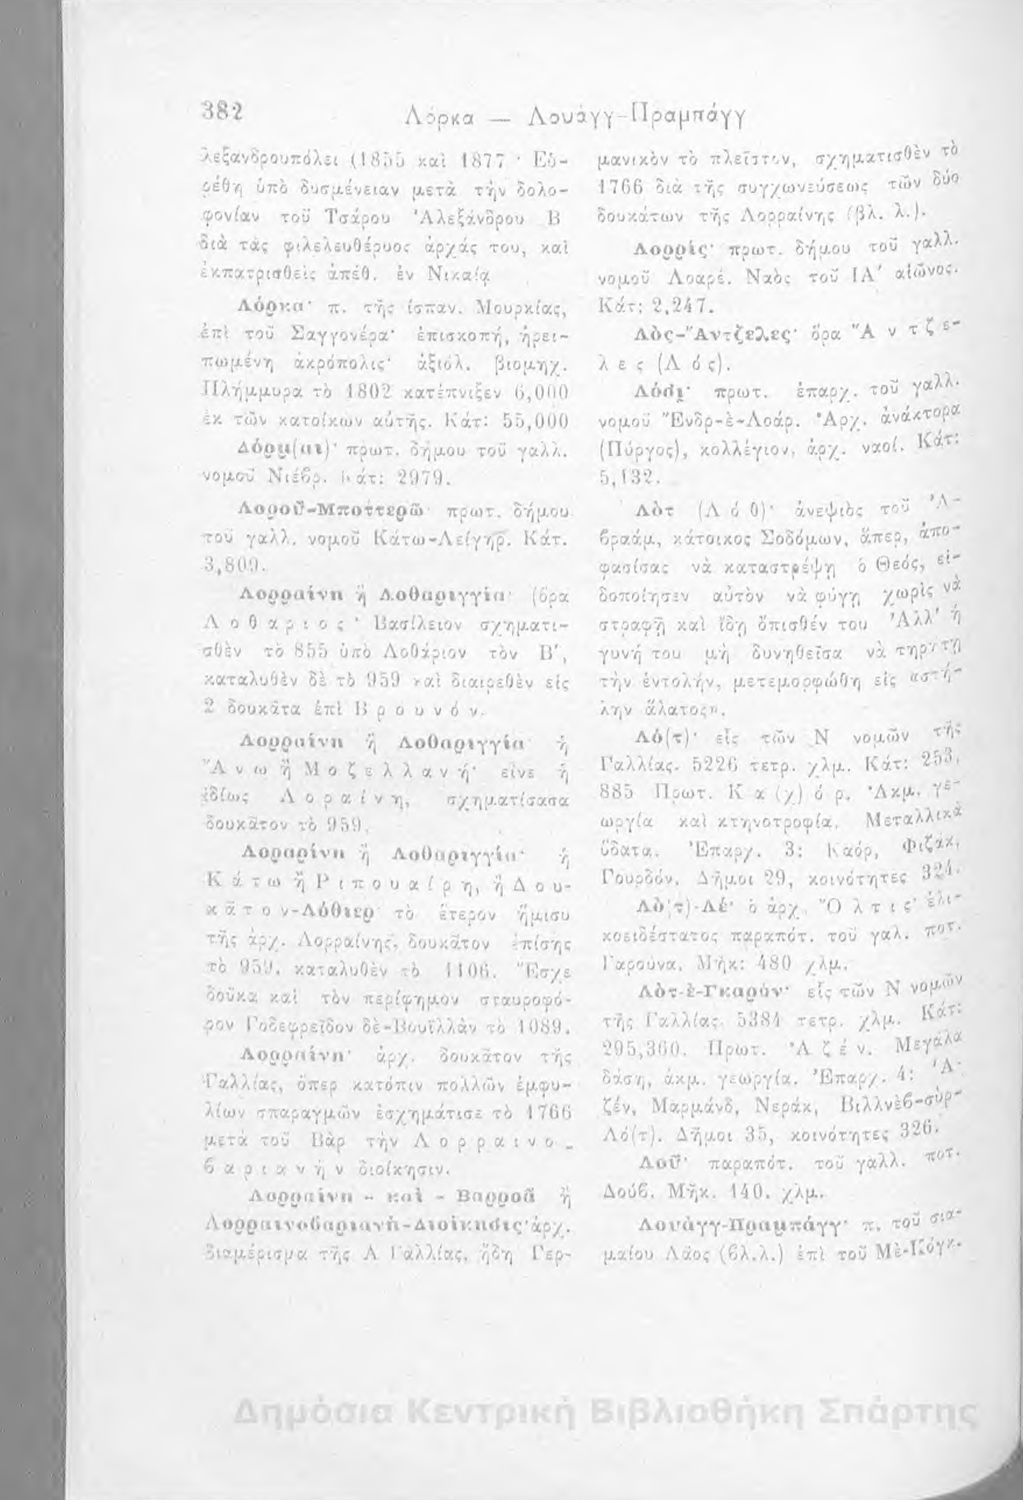 382
Λόρκα — Λουάγγ-Πραμπάγγ
λεξανδρουπόλει (1855 καὶ 1877 · Εὑ-
ρέθη ὑπὸ δυσμένειαν μετὰ τὴν δολο-
φονίαν τοῦ Τσάρου Ἀλεξάνδρου Β
διὰ τὰς φιλελευθέρυος ἀρχάς του, καὶ
ἐκπατρισθεὶς ἀπέθ. ἐν Νικαίᾳ
Λόρκα· π. τῆς ἱσπαν. Μουρκίας,
ἐπὶ τοῦ Σαγγονέρα· ἐπισκοπή, ἠρει-
πωμένη ἀκρόπολις· ἀξιόλ. βιομηχ.
Πλήμμυρα τὸ 1802 κατέπνιξεν 6,000
ἐκ τῶν κατοίκων αὐτῆς. Κάτ: 55,000
Λόρμ(αι)· πρωτ. δήμου τοῦ γαλλ.
νομοῦ Νιέβρ. Κάτ: 2979.
Λοροῦ-Μποττερῶ πρωτ. δήμου
τοῦ γαλλ. νομοῦ Κάτω-Λείγηρ. Κάτ.
3,809.
Λορραίνη ἢ Λοθαριγγία· (ὅρα
Λοθάριος· Βασίλειον σχηματι-
σθὲν τὸ 855 ὑπὸ Λοθάριον τὸν Β΄,
καταλυθὲν δὲ τὸ 959 καὶ διαιρεθὲν εἰς
2 δουκᾶτα ἐπὶ Βρουνόν.
Λορραίνη ἢ Λοθαριγγία ἡ
Ἄνω ἢ Μοζελλανή· εἶνε ἡ
ἰδίως Λοραίνη, σχηματίσασα
δουκᾶτον τὸ 959.
Λοραρίνη ἢ Λοθαριγγία· ἡ
Κάτω ἢ Ριπουαίρη, ἢ Δου-
κᾶτον-Λόθιερ τὸ ἕτερον ἥμισυ
τῆς ἀρχ. Λορραίνης, δουκᾶτον ἐπίσης
τὸ 959, καταλυθὲν τὸ 1106. Ἔσχε
δοῦκα καὶ τὸν περίφημον σταυροφό-
ρον Γοδεφρεῖδον δὲ-Βουϊλλὰν τὸ 1089.
Λορραίνη· ἀρχ. δουκᾶτον τῆς
Γαλλίας, ὅπερ κατόπιν πολλῶν ἐμφυ-
λίων σπαραγμῶν ἐσχημάτισε τὸ 1766
μετὰ τοῦ Βὰρ τὴν Λορραινο-
βαριανὴν διοίκησιν.
Λορραίνη - καὶ - Βαρροᾶ ἢ
Λορραινοβαριανὴ-Διοίκησις· ἀρχ.
διαμέρισμα τῆς Α Γαλλίας, ἤδη Γερ-
μανικὸν τὸ πλεῖστον, σχηματισθὲν τὸ
1766 διὰ τῆς συγχωνεύσεως τῶν δύο
δουκάτων τῆς Λορραίνης (βλ. λ.).
Λορρίς· πρωτ. δήμου τοῦ γαλλ.
νομοῦ Λοαρέ. Ναὸς τοῦ ΙΑ΄ αἰῶνος.
Κάτ: 2,247.
Λὸς-Ἄντζελες· ὅρα Ἄντζε-
λες (Λός).
Λόσι· πρωτ. ἐπαρχ. τοῦ γαλλ.
νομοῦ Ἔνδρ-ὲ-Λοάρ. Ἀρχ. ἀνάκτορα
(Πύργος), κολλέγιον, ἀρχ. ναοί. Κάτ:
5,132.
Λὸτ (Λόθ)· ἀνεψιὸς τοῦ Ἀ-
βραάμ, κάτοικος Σοδόμων, ἅπερ, ἀπο-
φασίσας νὰ καταστρέψῃ ὁ Θεός, εἰ-
δοποίησεν αὐτὸν νὰ φύγῃ χωρὶς νὰ
στραφῇ καὶ ἴδῃ ὄπισθέν του Ἀλλ' ἡ
γυνή του μὴ δυνηθεῖσα νὰ τηρήσῃ
τὴν ἐντολήν, μετεμορφώθη εἰς «στή-
λην ἅλατος».
Λό(τ)· εἷς τῶν Ν νομῶν τῆς
Γαλλίας. 5226 τετρ. χλμ. Κάτ: 253,
885 Πρωτ. Κα(χ)όρ. Ἀκμ. γε-
ωργία καὶ κτηνοτροφία. Μεταλλικὰ
ὕδατα. Ἐπαρχ. 3: Καόρ, Φιζάκ,
Γουρδόν. Δῆμοι 29, κοινότητες 324.
Λὸ(τ)-Λέ· ὁ ἀρχ. Ὄλτις· ἑλι-
κοειδέστατος παραπότ. τοῦ γαλ. ποτ.
Γαρούνα. Μῆκ: 480 χλμ.
Λὸτ-ὲ-Γκαρόν· εἷς τῶν Ν νομῶν
τῆς Γαλλίας. 5384 τετρ. χλμ. Κάτ:
295,360. Πρωτ. Ἀζέν. Μεγάλα
δάση, ἀκμ. γεωργία. Ἐπαρχ. 4: Ἀ-
ζέν, Μαρμάνδ, Νεράκ, Βιλλνὲβ-σὺρ-
Λό(τ). Δῆμοι 35, κοινότητες 326.
Λοῦ· παραπότ. τοῦ γαλλ. ποτ.
Δούβ. Μῆκ. 140. χλμ.
Λουάγγ-Πραμπάγγ· π. τοῦ σια-
μαίου Λάος (βλ.λ.) ἐπὶ τοῦ Μὲ-Κόγκ.
Δημόσια Κεντρική Βιβλιοθήκη Σπάρτης